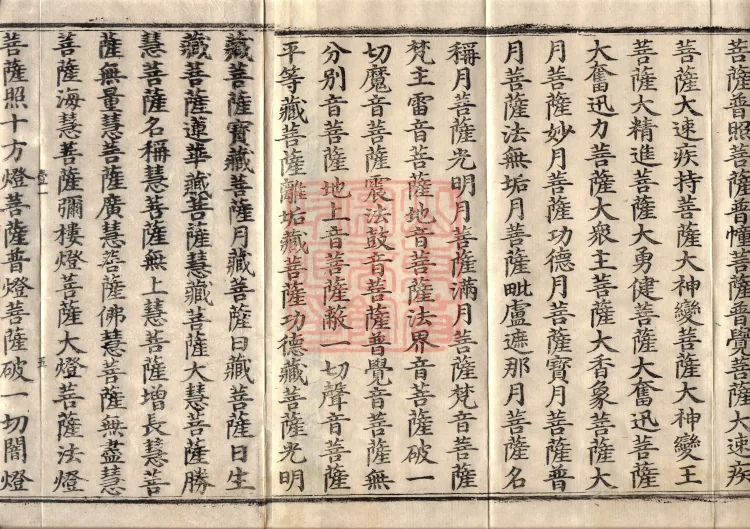 菩薩普照菩薩普幢菩薩普覺菩薩大速疾
菩薩大速疾持菩薩大神變菩薩大神變王
菩薩大精進菩薩大勇健菩薩大奮迅菩薩
大奮迅力菩薩大衆主菩薩大香象菩薩大
月菩薩妙月菩薩功德月菩薩寶月菩薩普
月菩薩法無垢月菩薩毗盧遮那月菩薩名
稱月菩薩光明月菩薩滿月菩薩梵音菩薩
梵主雷音菩薩地音菩薩法界音菩薩破一
切魔音菩薩震法鼓音菩薩普覺音菩薩無
分別音菩薩地上音菩薩蔽一切聲音菩薩
平等藏菩薩離垢藏菩薩功德藏菩薩光明
藏菩薩寶藏菩薩月藏菩薩日藏菩薩日生
藏菩薩蓮華藏菩薩慧藏菩薩大慧菩薩勝
慧菩薩名稱慧菩薩無上慧菩薩增長慧菩
薩無量慧菩薩廣慧菩薩佛慧菩薩無盡慧
菩薩海慧菩薩彌樓燈菩薩大燈菩薩法燈
壹一 五
菩薩照十方燈菩薩普燈菩薩破一切闇燈